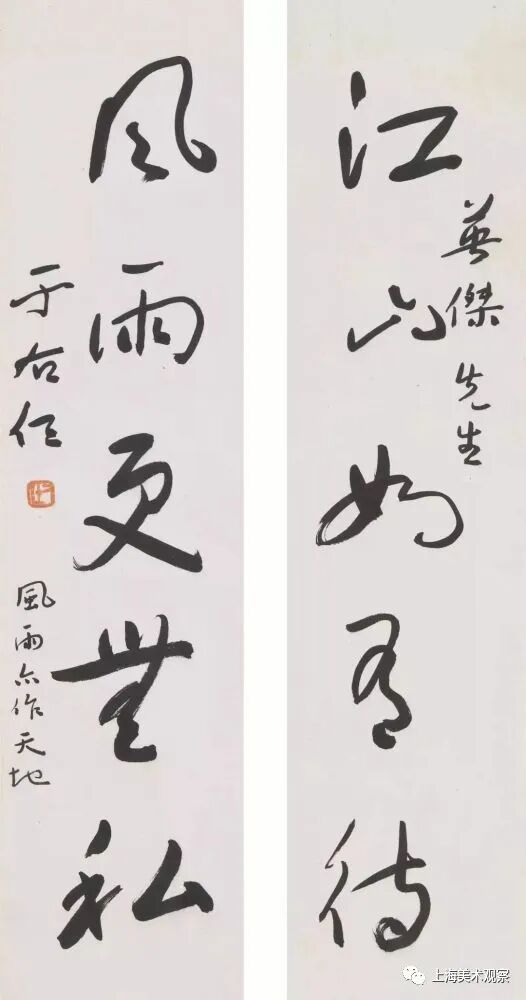 江山如有待
英傑先生
風雨更無私
于右任
風雨亦作天地
上海美术观察